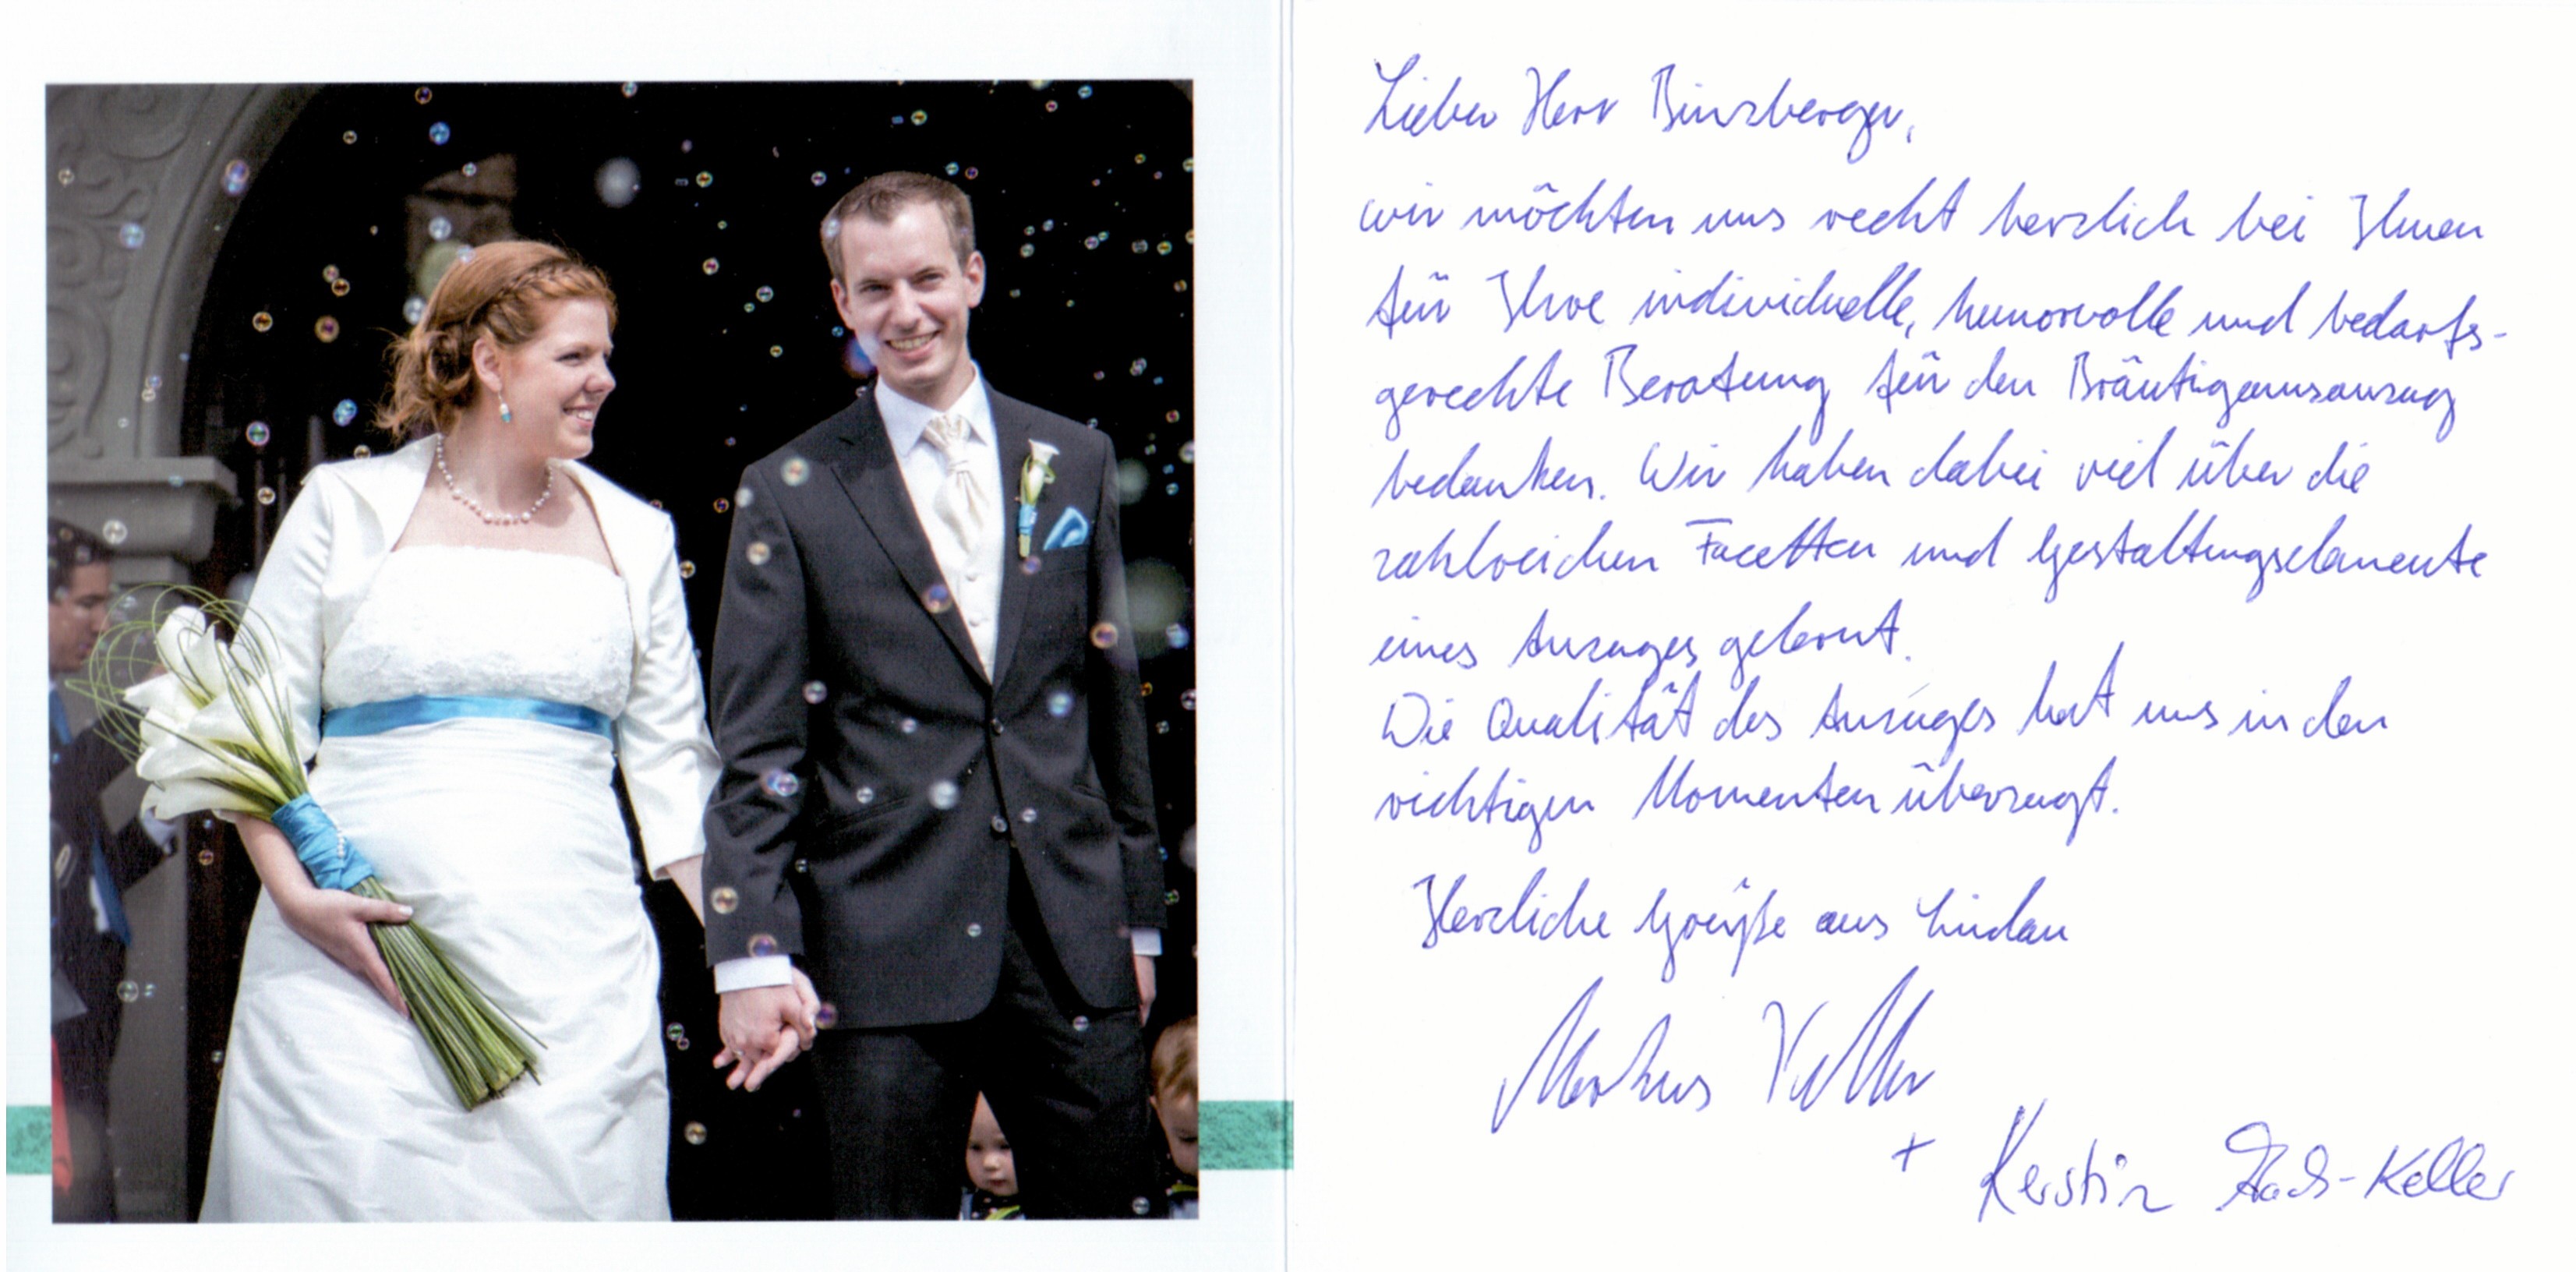 Lieber Herr Binzberger,
wir möchten uns recht herzlich bei Ihnen
für Ihre individuelle, humorvolle und bedarfs-
gerechte Beratung für den Bräutigamsanzug
bedanken. Wir haben dabei viel über die
zahlreichen Facetten und Gestaltungselemente
eines Anzuges gelernt.
Die Qualität des Anzuges hat uns in den
richtigen Momenten überzeugt.
Herzliche Grüße aus Lindau
Markus Keller
+ Kerstin -Keller